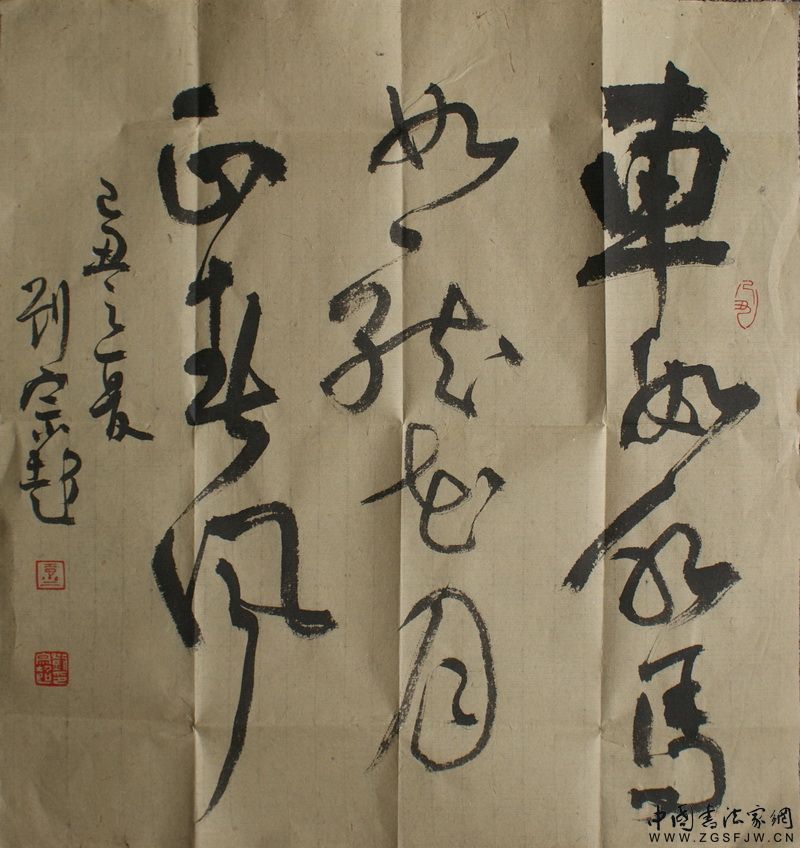 車如水馬
如龍花月
正春風
己丑之夏
劉宗超
中国书法家網
WWW.ZGSFJW.CN